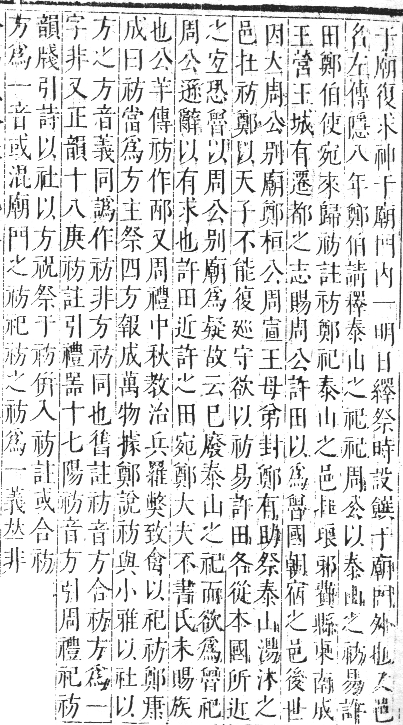 于廟復求神于廟門內一明日繹祭時設饌于廟門外也又邑
名左傳隱八年鄭伯請釋泰山之祀祀周公以泰山之祊易許
田鄭伯使宛來歸祊註祊鄭祀泰山之邑在琅邪費縣東南成
王營王城有遷都之志賜周公許田以爲魯國朝宿之邑後世
因大周公別廟鄭桓公周宣王母弟封鄭有助祭泰山湯沐之
邑在祊鄭以天子不能復巡守欲以祊易許田各從本國所近
之宐恐魯以周公別廟爲疑故云已廢泰山之祀而欲爲魯祀
周公遜辭以有求也許田近許之田宛鄭大夫不書氏未賜族
也公羊傳祊作邴又周禮中秋教治兵羅獘致禽以祀祊鄭康
成曰祊當爲方主祭四方報成萬物據鄭說祊與小雅以社以
方之方音義同譌作祊非方祊同也舊註祊音方合祊方爲一
字非又正韻十八庚祊註引禮器十七陽祊音方引周禮祀祊
韻牋引詩以社以方祝祭于祊倂入祊註或合祊
方爲一音或混廟門之祊祀祊之祊爲一義𠀤非